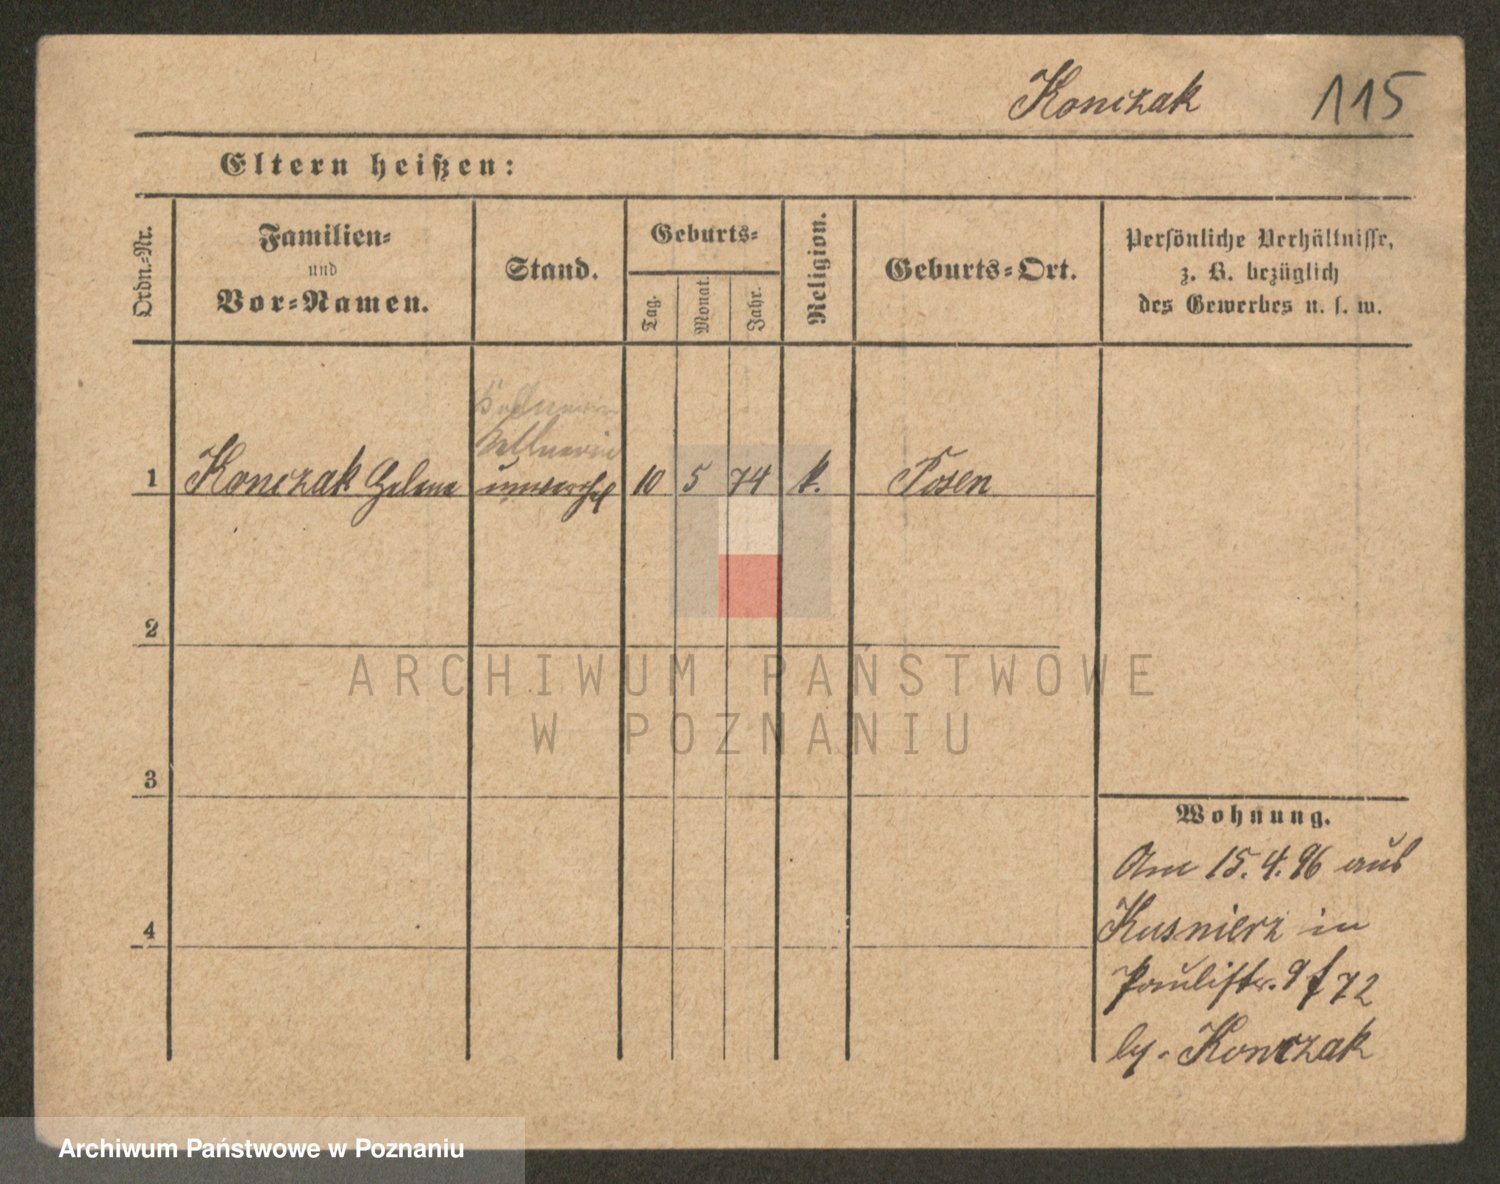 Konczak 115
Eltern heißen:
Ordn.-Nr.
Familien-
und
Vor-Namen.
Stand.
Geburts-
Tag.
Monat.
Jahr.
Religion.
Geburts-Ort.
Persönliche Verhältnisse,
z. B. bezüglich
des Gewerbes u. s. w.
Kellnerin
1 Konczak Helena unverehel 10 5 74 k. Posen
2
3
4
Wohnung.
Am 15.4.96 aus
Kusnierz in
Paulistr. 9 f 72
by. Konczak
ARCHIWUM PAŃSTWOWE
W POZNANIU
Archiwum Państwowe w Poznaniu